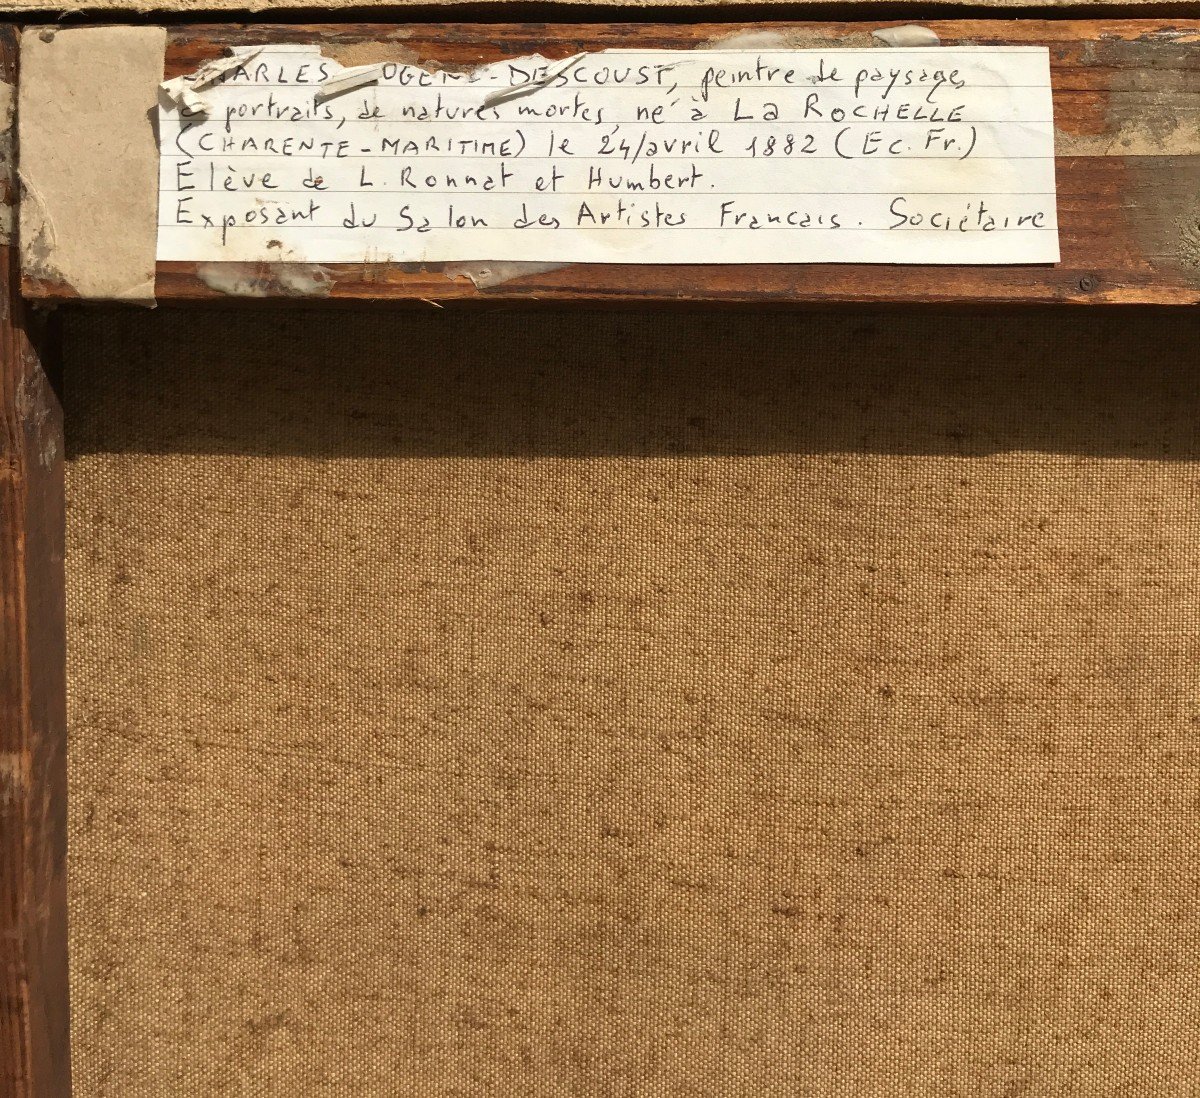 CHARLES DESCOUST, peintre de paysage,
portraits, de natures mortes, né à La ROCHELLE
(CHARENTE-MARITIME) le 24/avril 1882 (Ec. Fr.)
Elève de L. Ronnat et Humbert.
Exposant du Salon des Artistes Francais. Sociétaire